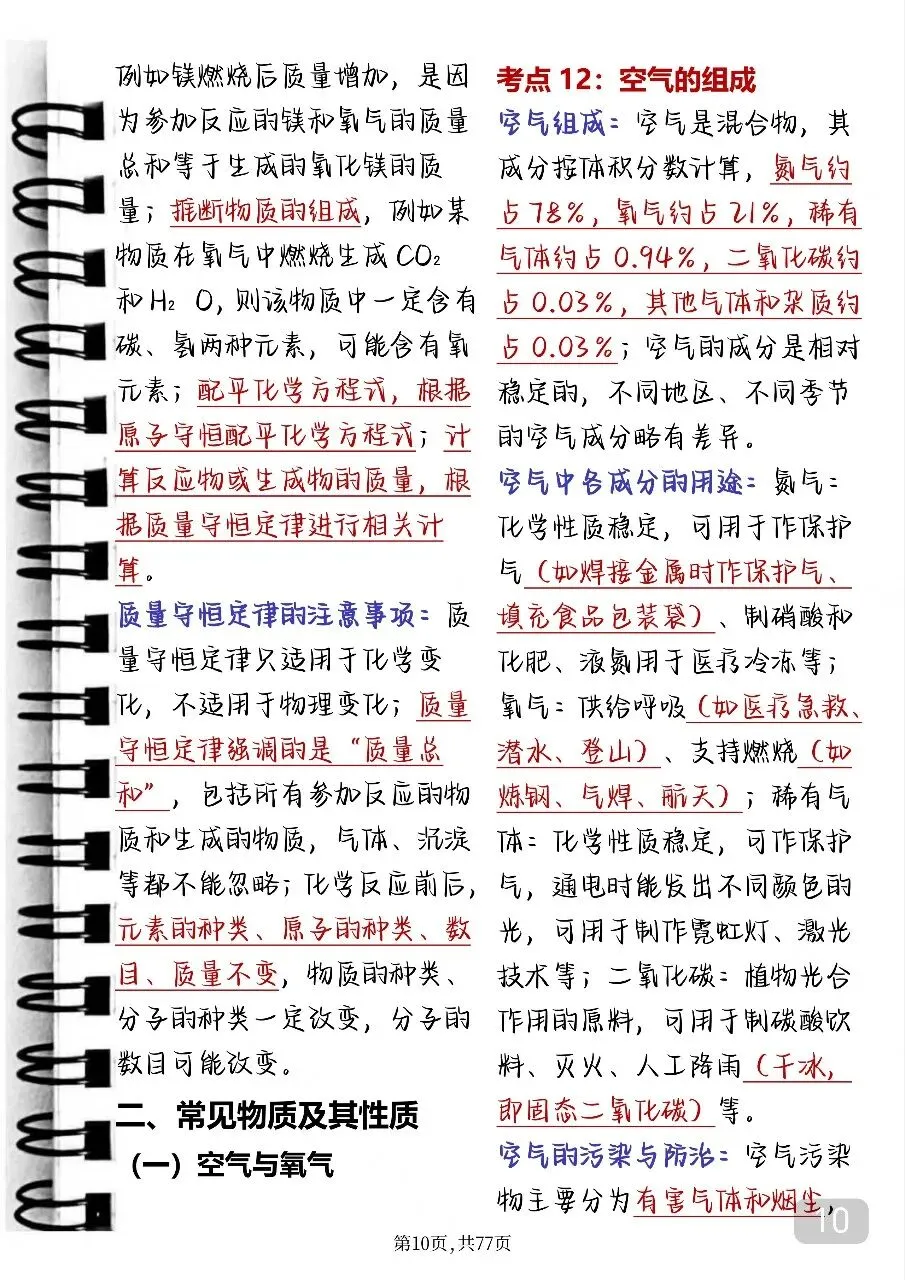 例如镁燃烧后质量增加，是因
为参加反应的镁和氧气的质量
总和等于生成的氧化镁的质
量；推断物质的组成，例如某
物质在氧气中燃烧生成CO₂
和H₂ O，则该物质中一定含有
碳、氢两种元素，可能含有氧
元素；配平化学方程式，根据
原子守恒配平化学方程式；计
算反应物或生成物的质量，根
据质量守恒定律进行相关计
算。
质量守恒定律的注意事项：质
量守恒定律只适用于化学变
化，不适用于物理变化；质量
守恒定律强调的是“质量总
和”，包括所有参加反应的物
质和生成的物质，气体、沉淀
等都不能忽略；化学反应前后，
元素的种类、原子的种类、数
目、质量不变，物质的种类、
分子的种类一定改变，分子的
数目可能改变。
二、常见物质及其性质
（一）空气与氧气
考点 12：空气的组成
空气组成：空气是混合物，其
成分按体积分数计算，氮气约
占78%，氧气约占21%，稀有
气体约占0.94%，二氧化碳约
占0.03%，其他气体和杂质约
占0.03%；空气的成分是相对
稳定的，不同地区、不同季节
的空气成分略有差异。
空气中各成分的用途：氮气：
化学性质稳定，可用于作保护
气（如焊接金属时作保护气、
填充食品包装袋）、制硝酸和
化肥、液氮用于医疗冷冻等；
氧气：供给呼吸（如医疗急救、
潜水、登山）、支持燃烧（如
炼钢、气焊、航天）；稀有气
体：化学性质稳定，可作保护
气，通电时能发出不同颜色的
光，可用于制作霓虹灯、激光
技术等；二氧化碳：植物光合
作用的原料，可用于制碳酸饮
料、灭火、人工降雨（干冰，
即固态二氧化碳）等。
空气的污染与防治：空气污染
物主要分为有害气体和烟尘，
10
第10页,共77页